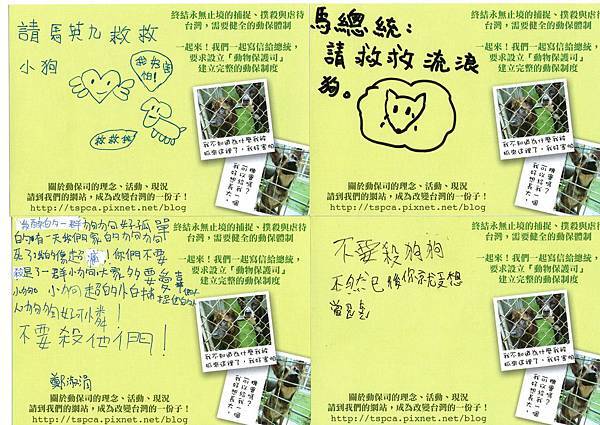 請馬英九救救
小狗
我好害
怕!
救救我
終結永無止境的捕捉、撲殺與虐待
台灣,需要健全的動保體制
一起來!我們一起寫信給總統,
要求設立「動物保護司」
建立完整的動保制度
我不知道為什麼我被
抓來這裡了,我好害怕
機會嗎?
可以給我一個
我好想長大,
關於動保司的理念、活動、現況
請到我們的網站,成為改變台灣的一份子!
http://tspca.pixnet.net/blog
馬總統:
請救救流浪
狗。
終結永無止境的捕捉、撲殺與虐待
台灣,需要健全的動保體制
一起來!我們一起寫信給總統,
要求設立「動物保護司」
建立完整的動保制度
我不知道為什麼我被
抓來這裡了,我好害怕
機會嗎?
可以給我一個
我好想長大,
關於動保司的理念、活動、現況
請到我們的網站,成為改變台灣的一份子!
http://tspca.pixnet.net/blog
一群狗狗好孤單
有一天我們家的狗狗
死了我的傷心!你們不要
殺
了一群小狗大家要愛
小狗。小狗
狗狗好可憐!
不要殺他們!
鄭淑涓
終結永無止境的捕捉、撲殺與虐待
台灣,需要健全的動保體制
一起來!我們一起寫信給總統,
要求設立「動物保護司」
建立完整的動保制度
我不知道為什麼我被
抓來這裡了,我好害怕
機會嗎?
可以給我一個
我好想長大,
關於動保司的理念、活動、現況
請到我們的網站,成為改變台灣的一份子!
http://tspca.pixnet.net/blog
不要殺狗狗
不然已後你
終結永無止境的捕捉、撲殺與虐待
台灣,需要健全的動保體制
一起來!我們一起寫信給總統,
要求設立「動物保護司」
建立完整的動保制度
我不知道為什麼我被
抓來這裡了,我好害怕
機會嗎?
可以給我一個
我好想長大,
關於動保司的理念、活動、現況
請到我們的網站,成為改變台灣的一份子!
http://tspca.pixnet.net/blog